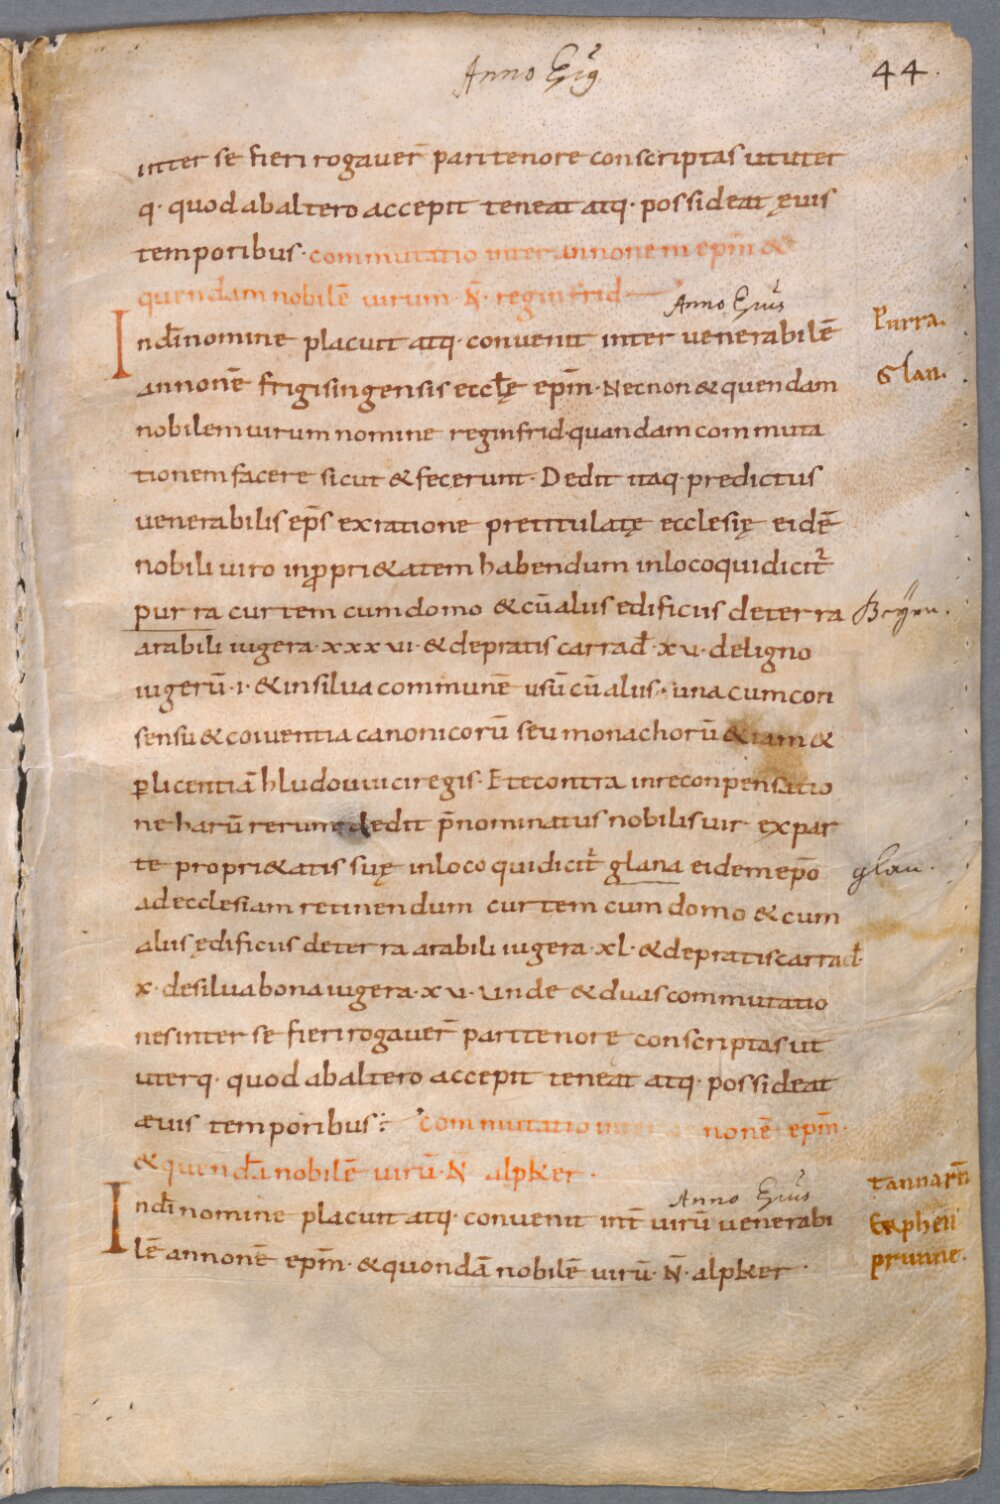 Anno Epī
44.
inter se fieri rogauer̄ pari tenore conscriptas ut uter
q· quod ab altero accepit teneat atq· possideat ęuis
temporibus· commutatio inter annonem ep̄m &
quendam nobilē uirum· N̄· reginfrid
In d̄i nomine placuit atq· conuenit inter venerabilē
annonē frigisingensis eccłę ep̄m· Necnon & quendam
nobilem uirum nomine reginfrid· quandam commuta
tionem facere sicut & fecerunt· Dedit itaq· predictus
venerabilis ep̄s ex ratione pretitulatę ecclesię eidē
nobili uiro in ꝓpri&atem habendum in loco qui dicit̄
purra curtem cum domo & cū aliis edificiis de terra
arabili iugera· xxxvi· & de pratis carrad̄· xv· de ligno
iugerū· i· & in silua communē usū cū aliis· una cum con
sensu & coiuentia canonicorū seu monachorū &iam &
ꝑ licentiā hludouuici regis· Et econtra in reconpensatio
ne harū rerum dedit p̄nominatus nobilis uir· ex par
te propri&atis suę in loco qui dicit̄ glana eidem ep̄o
ad ecclesiam retinendum curtem cum domo & cum
aliis ędificiis de terra arabili iugera· xl· & de pratis carrad̄·
x· de silua bona iugera· xv· unde & duas commutatio
nes inter se fieri rogauer̄ pari tenore conscriptas ut
uterq· quod ab altero accepit teneat atq· possideat
æuis temporibus: commutatio inter nonē ep̄m·
& quendā nobilē uirū· N̄ alpker·
In d̄i nomine placuit atq· conuenit int̄ uirū uenerabi
lē annonē ep̄m· & quondā nobilē uirū· N̄· alpker·
Anno
Purra.
Glan.
glan.
Anno
prunne.